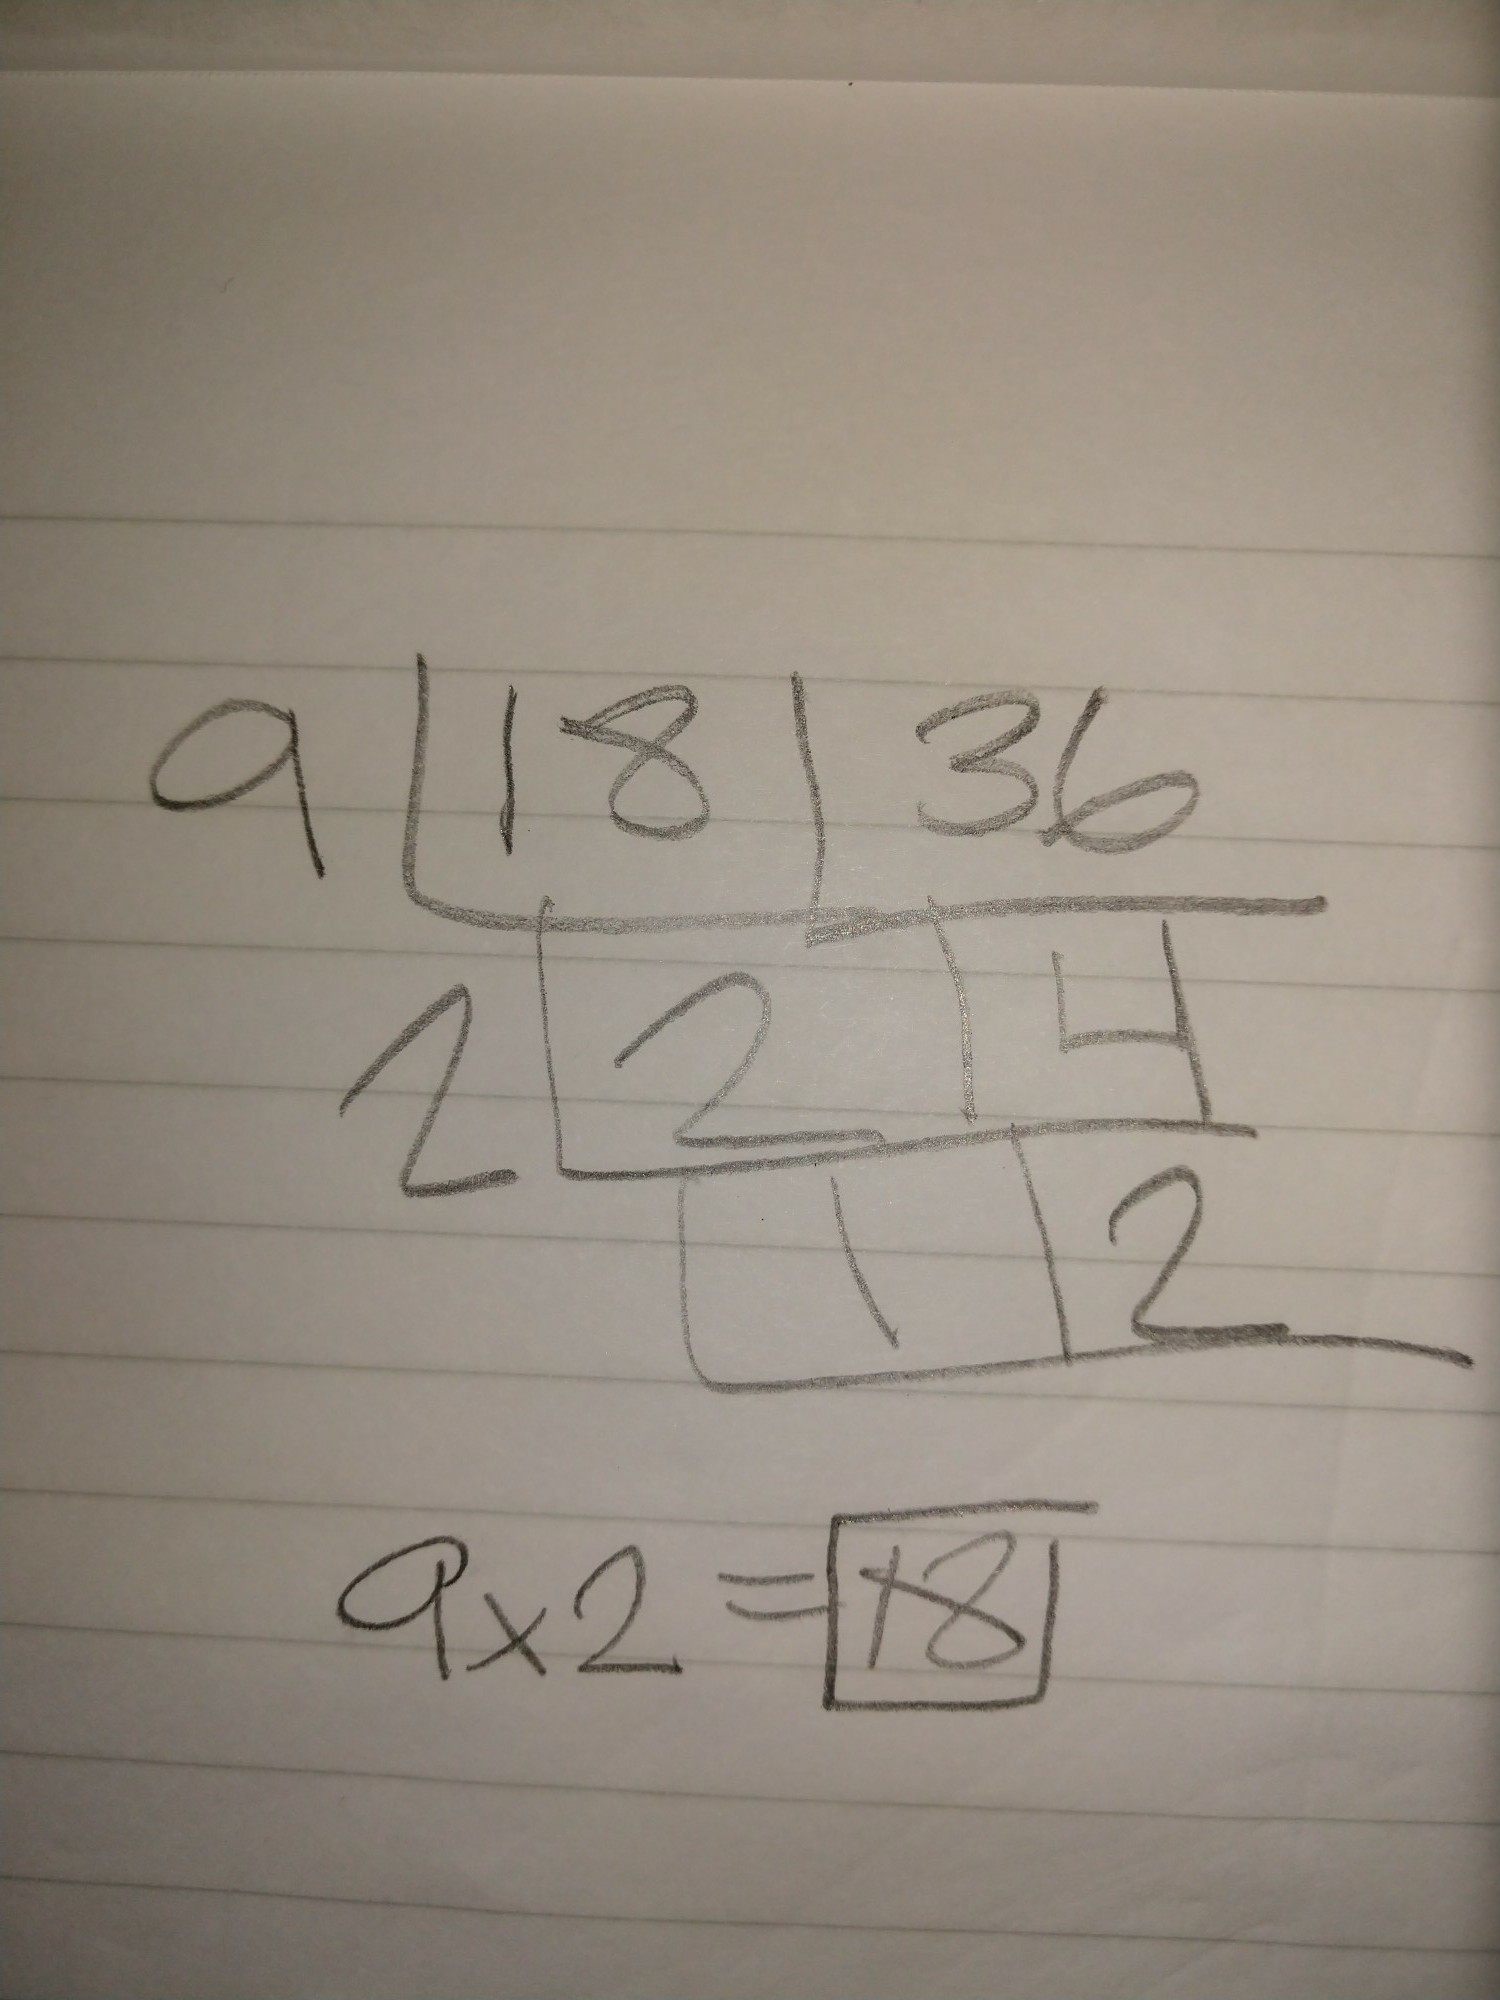 9 18 36
2 2 4
1 2
9 x 2 = 18